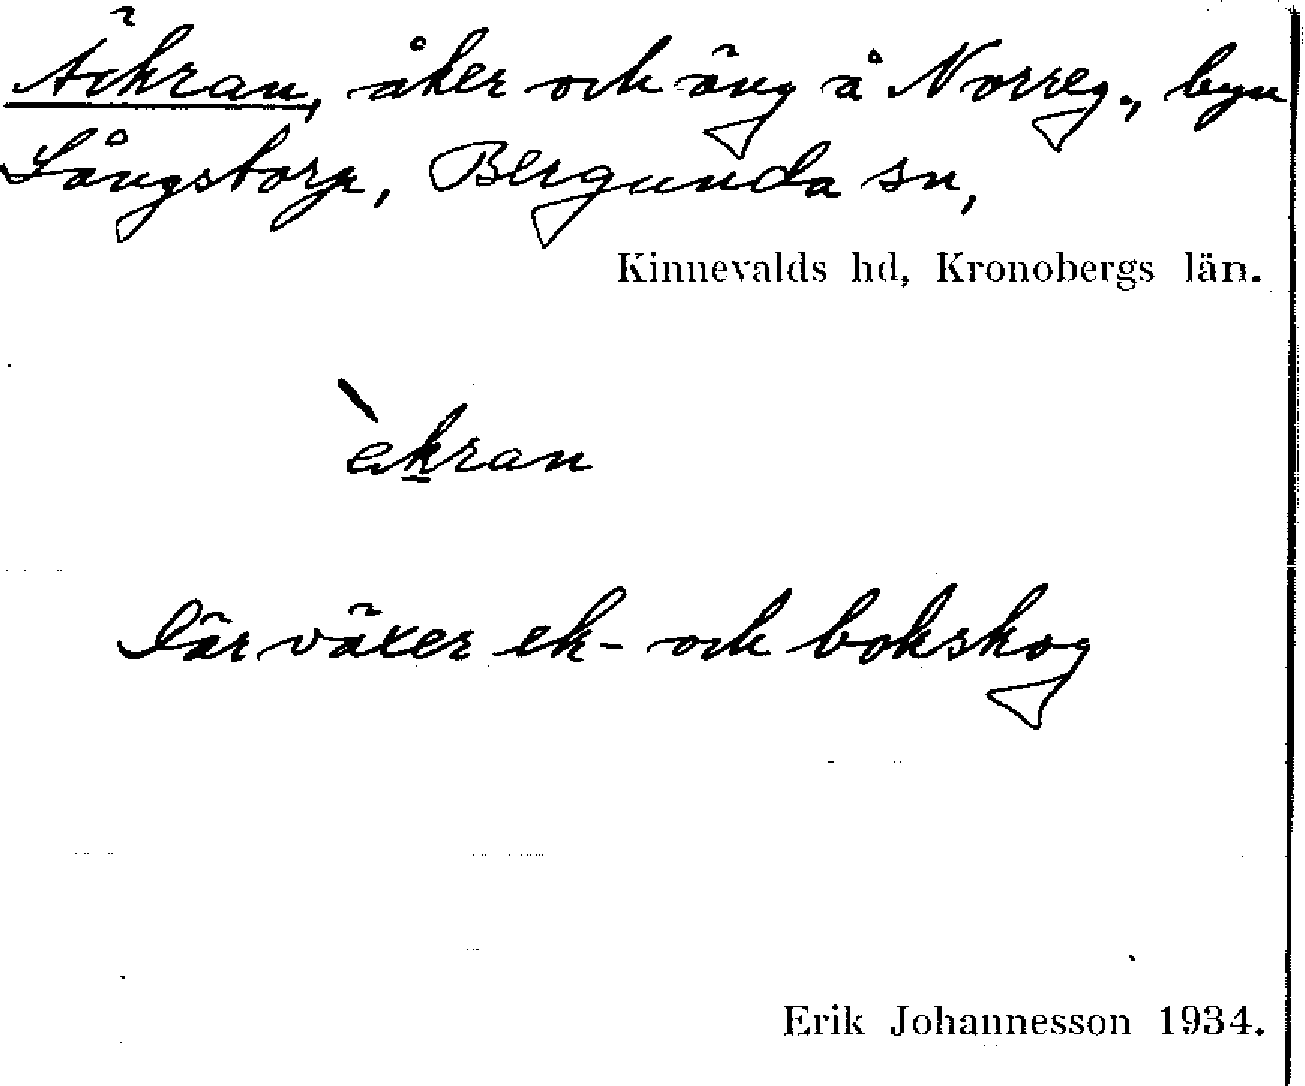 Äckran, åker och äng å Norreg., byn
Långstorp, Bergunda sn,
Kinnevalds hd, Kronobergs län.
`ekran
Där växer ek- och bokskog
Erik Johannesson 1934.